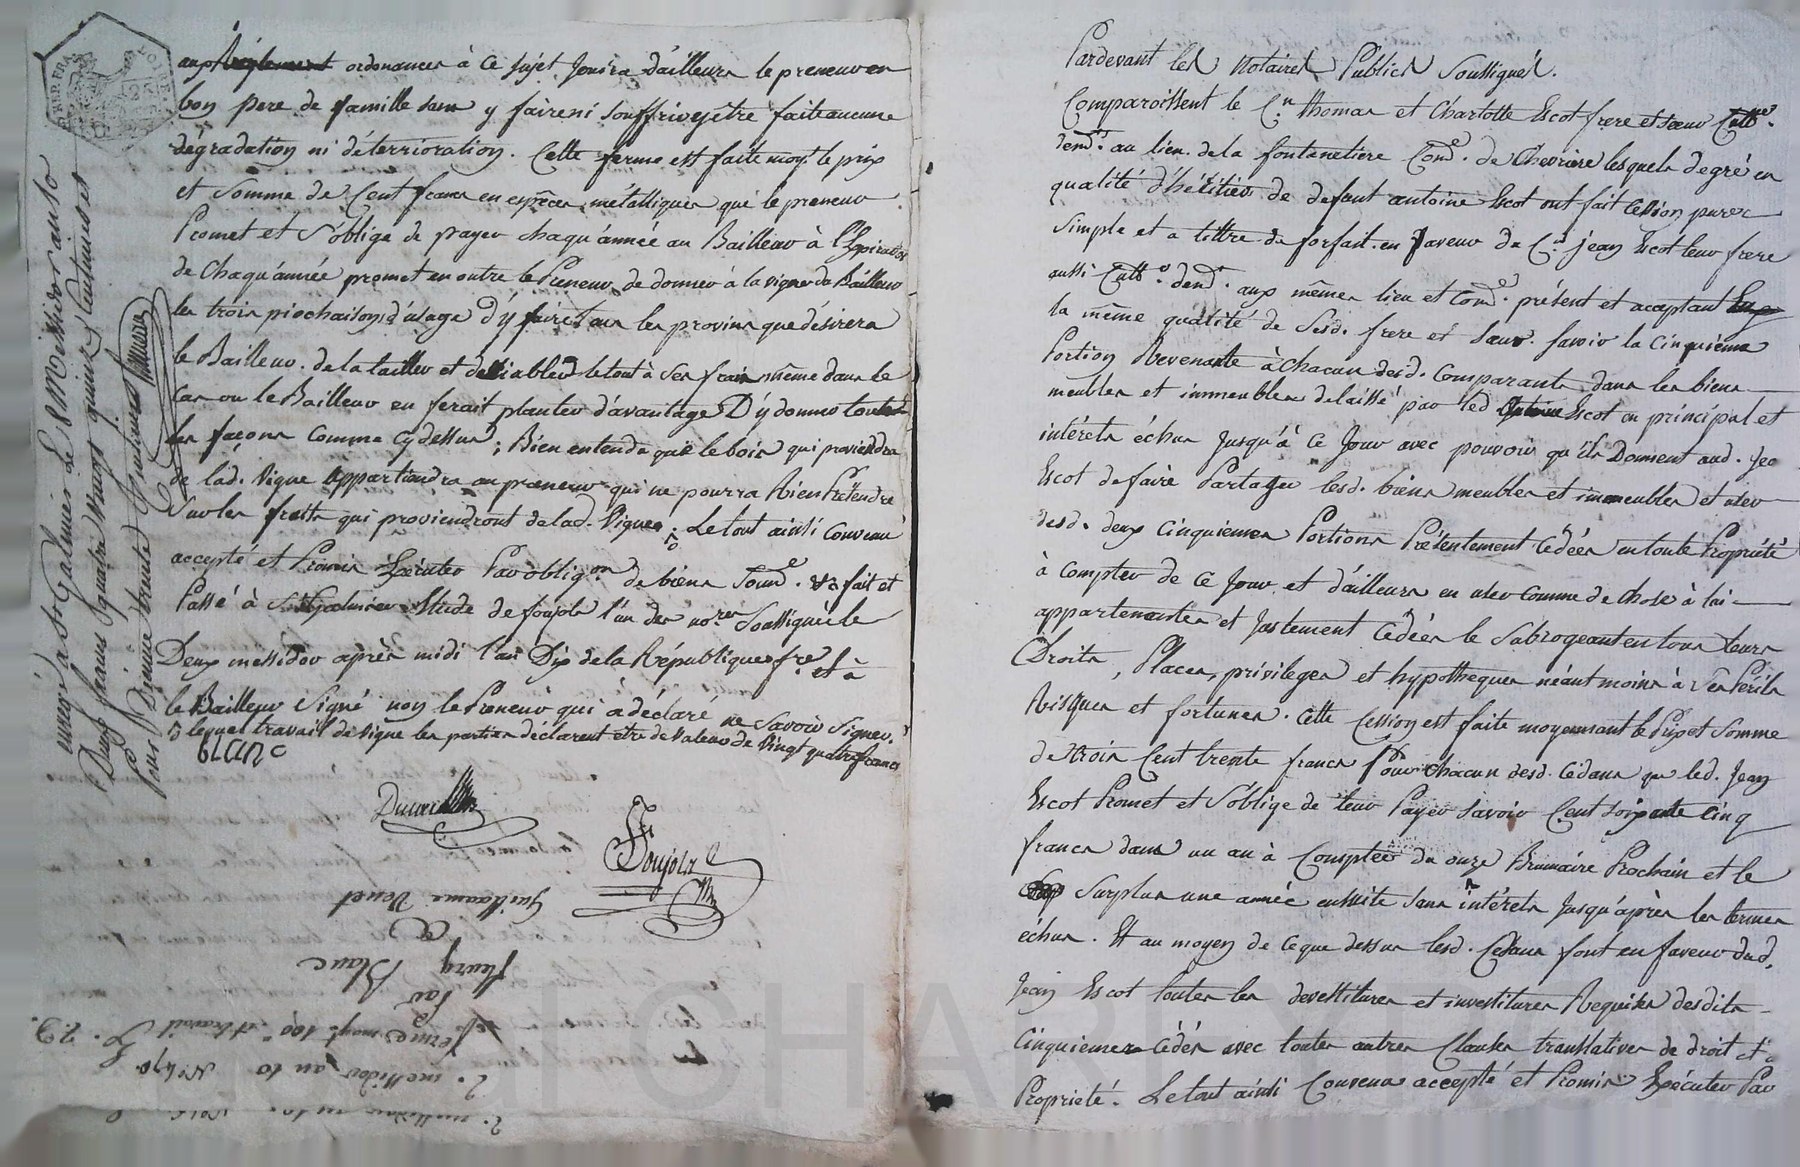 aux ordonnances à ce sujet Jouira d'ailleurs le preneur en
bon pere de famille sans y faire ni souffrir y être faite aucune
dégradation ni déterrioration. Cette ferme est faite moyt. le prix
et somme de Cent francs en espèces métalliques que le preneur
Promet et s'oblige de payer chaqu'année au Bailleur à l'Expiration
de chaqu'année promet en outre le Preneur de donner à la vigne du Bailleur
les trois piochaisons d'usage d'y faire tous les provins que désirera
le Bailleur. de la tailler et de le tout à ses frais même dans le
Cas ou le Bailleur en ferait planter d'avantage D'y donner toutes
les façons comme cy dessus; Bien entendu que le bois qui proviendra
de lad. vigne appartiendra au preneur qui ne pourra Rien Prétendre
Sur les fruits qui proviendront de lad. vigne; Le tout ainsi Convenu
accepté et Promis Exécuter Par obligon. de biens Soume. fait et
Passé à St. Galmier Etude de foujols l'un des nores. Soussignés le
Deux messidor après midi l'an Dix de la République fse. et à
le Bailleur signé non le Preneur qui a déclaré ne savoir signer.
lequel travail de vigne les parties déclarent être de valeur de vingt quatre francs
BLANC
Duvers
Foujols
Nre
Guillaume Venet
a
fleury Blanc
Par
ferme moyt. 100 et travail
2. messidor an 10 No. 470
2. messidor an 10
enregé à St. Galmier le messidor an 10
Deux francs quatre vingt quinze Centimes et
pour Dixieme trente Centimes
Pardevant les Notaires Publics Soussignés.
Comparoissent le Cn. thomas et Charlotte Escot frere et soeur Cultre.
demt. au lieu de la fontanetiere Come. de Chevriere lesquels de gré en
qualité d'héritiers de defunt antoine Escot ont fait Cession pure &
simple et a tittre de forfait en faveur de Cn. jean Escot leur frere
aussi Cultr. demt. aux mêmes lieu et Come. présent et acceptant
la même qualité de sesd. frere et soeur. savoir la Cinquième
Portion Revenante à chacun desd. Comparants dans les biens
meubles et immeubles délaissé par led. antoine Escot en principal et
intérêts échus jusqu'à ce jour avec pouvoir qu'ils Donnent aud. Jean
Escot de faire Partager lesd. biens meubles et immeubles et user
desd. deux Cinquiemes Portions Présentement Cédées en toute Propriété
à compter de ce jour et d'ailleurs en user comme de chose à lui
appartenantes et justement Cédées le subrogeant en tous leurs
Droits, Places, privileges et hypotheques néantmoins à ses Perils
Risques et fortunes. cette Cession est faite moyennant le Prix et Somme
de trois Cent trente francs Pour chacun desd. Cédans que led. Jean
Escot Promet et s'oblige de leur Payer savoir Cent soixante cinq
francs dans un an à compter du onze Brumaire Prochain et le
Surplus une année ensuite sans intérêts jusqu'après les termes
échus. Et au moyen de ce que dessus lesd. Cédans font en faveur dud.
Jean Escot toutes les devestitures et investitures Requises desdits
Cinquiemes Cédés avec toutes autres Clauses translatives de droit et
Propriété. Le tout ainsi Convenu accepté et Promis Exécuter Par